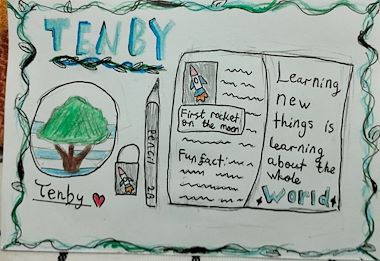 TENBY
Tenby
PENCIL 2B
First rocket
on the moon
Fun fact:
Learning
new
things is
learning
about the
whole
World